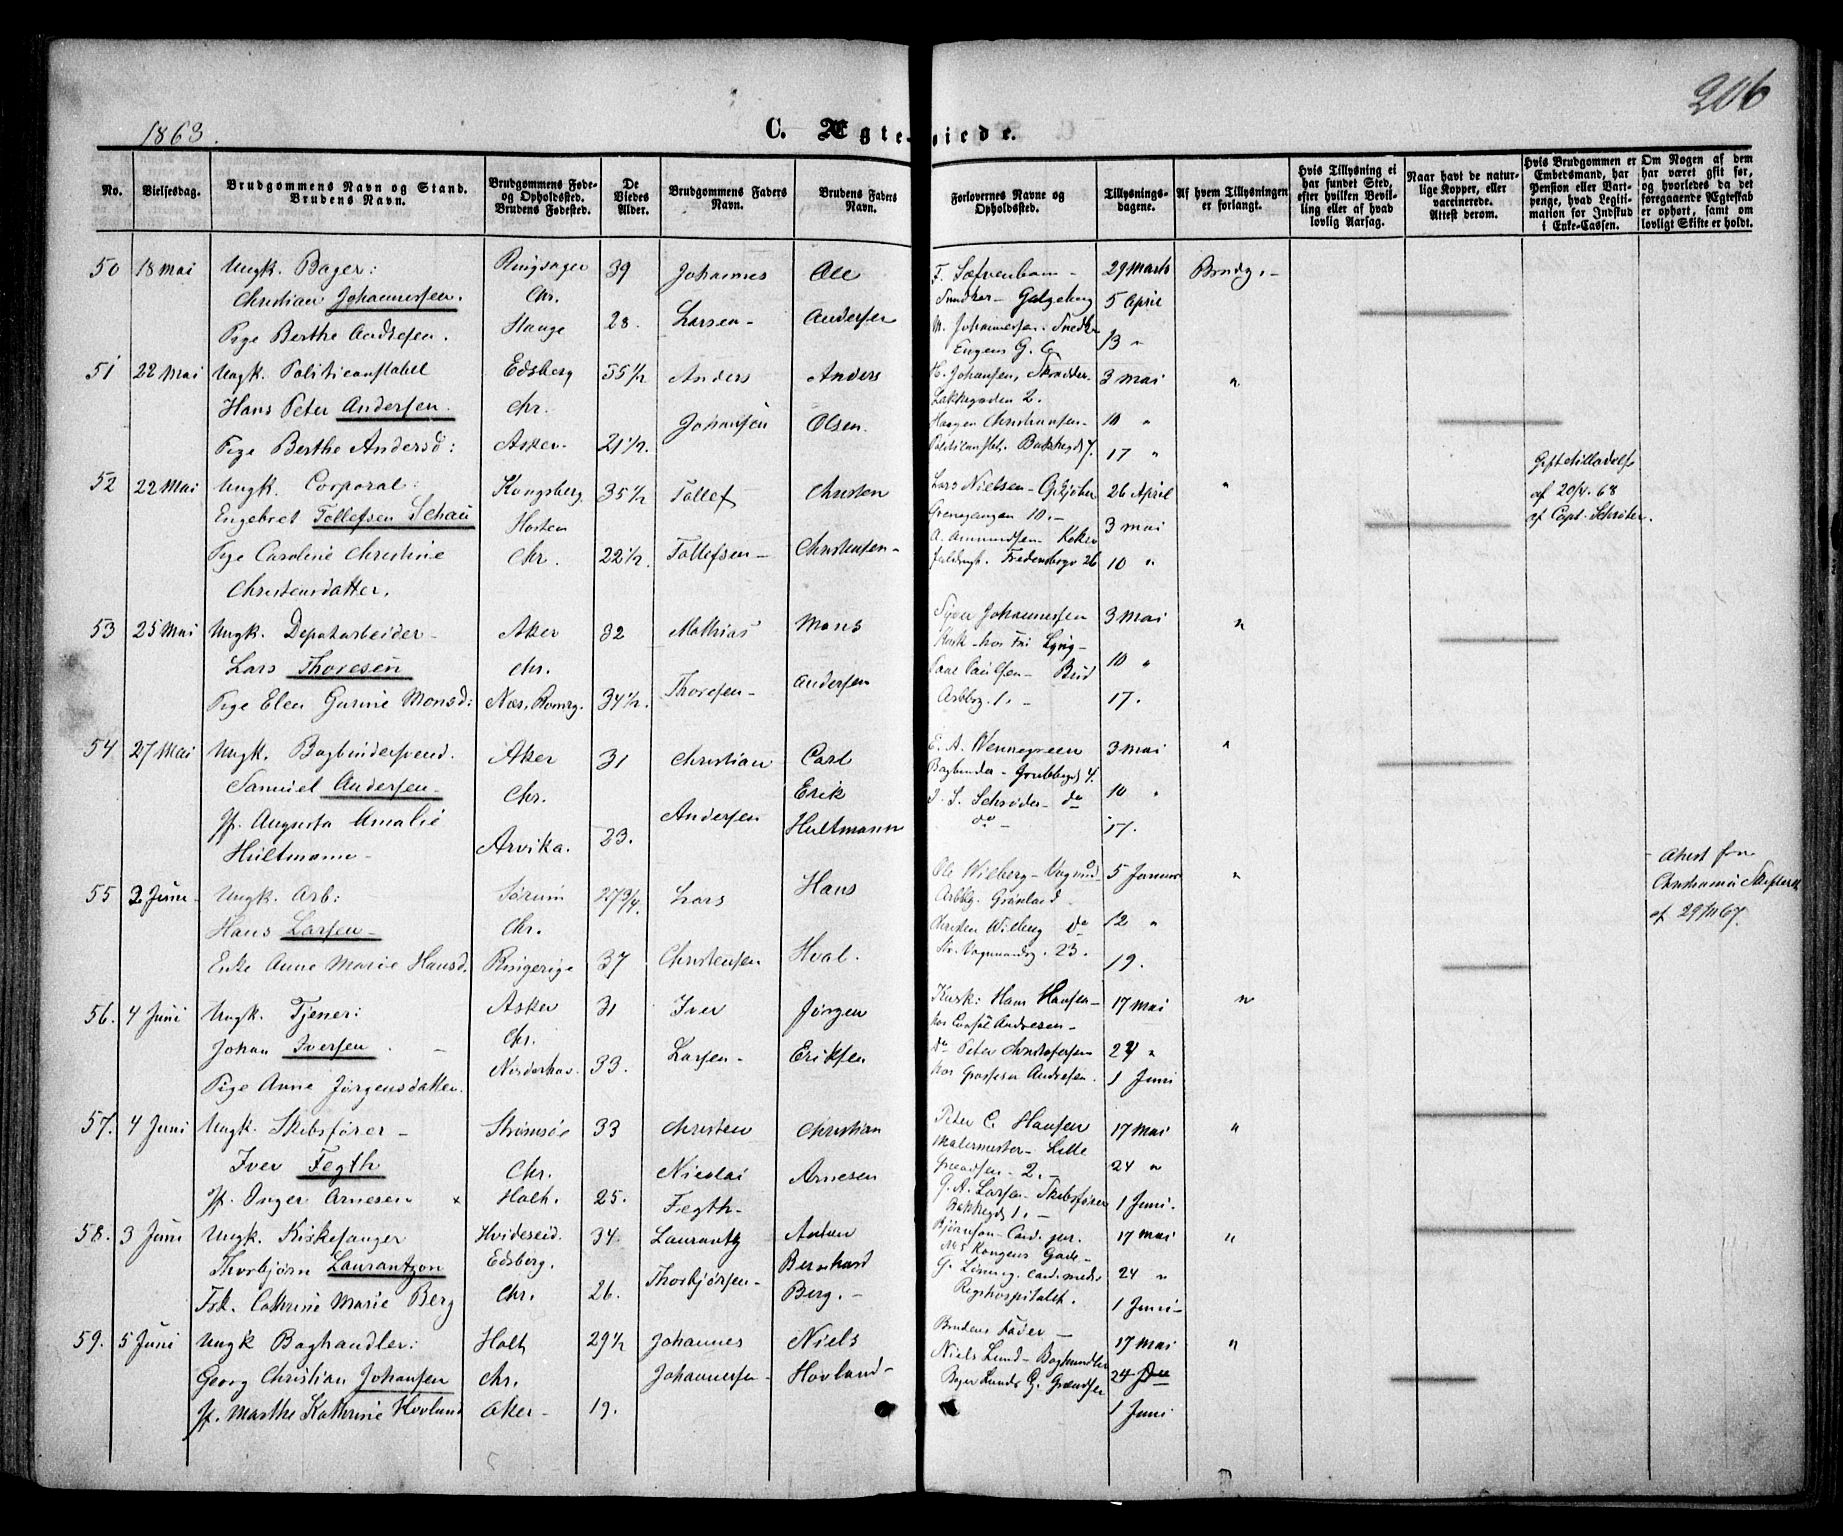 206
1863.
C. Ægteviede.
No.
Vielsesdag.
Brudgommens Navn og Stand.
Brudens Navn.
Brudgommens Føde-
og Opholdssted.
Brudens Fødested.
De
Viedes
Alder.
Brudgommens Faders
Navn.
Brudens Faders
Navn.
Forlovernes Navne og
Opholdssted.
Tillysnings-
dagene.
Af hvem Tillysningen
er forlangt.
Hvis Tillysning ei
har fundet Sted,
efter hvilken Bevil-
ling eller af hvad
lovlig Aarsag.
Naar havt de natur-
lige Kopper, eller
vaccinerede.
Attest derom.
Hvis Brudgommen er
Embedsmand, har
Pension eller Vart-
penge, hvad Legiti-
mation for Indskud
i Enke-Cassen.
Om Nogen af dem
har været gift før,
og hvorledes da det
foregaaende Ægteskab
er ophørt, samt om
lovligt Skifte er holdt.
50 18 Mai Ungk. Bager: Ringsager 39 Johannes Ole F. 29 Marts Brudg.
Christian Johannessen. Chr. Larsen Andersen Snedker - Galgeberg 5 April
Pige Berthe Andersen. Stange 28. Johannessen. Snedker 13 "
Engens G.
51 22 Mai Ungk. Politiconstabel Edsberg 35 1/2 Anders Anders H. Johansen, Skrædder 3 Mai "
Hans Peter Andersen. Chr. Johansen Olsen Lakkegaden 2.
Haagen Christiansen 10 "
Pige Berthe Andersd: Asker 21 1/2. Politiconstbl. Bakkegd 7. 17 "
52 22 Mai Ungk. Corporal: Kongsberg 35 1/2 Tollef Christen Lars Nielsen - 26 April " Giftetilladelse
Engebret Tollefsen Schau Horten Tollefsen Christensen Grønnegangen 10. 3 Mai af 20/4. 68
A. Amundsen af Capt. Schrøter.
Pige Caroline Christine Chr. 22 1/2. Fredensborgv 26 10 "
Christensdatter.
53 25 Mai Ungk. Depotarbeider Aker 32 Mathias Mons Syver Johannessen 3 Mai "
Lars Thoresen Chr. Thoresen Andersen Kusk hos 10 "
Paulsen
Pige Elen Gurine Monsd: Næs, Romrg. 34 1/2. Arbbg. 1. 17.
54 27 Mai Ungk. Bogbindersvend. Aker 31 Christian Carl E. A. Wennegreen 3 Mai "
Samuel Andersen Chr. Andersen Erik Bogbinder - Grubbegd 4. 10 "
Jf. Augusta Amalie Arvika. 23. Hultmann J. S. Schrøder do 17.
Hultmann do
55 2 Juni Ungk. Arb: Sørum 27 3/4. Lars Hans Ole Wiberg - 5 Januar " Attest fra
Hans Larsen Chr. Christensen Hval. Arbbg. Grønland 12 " Christiania Skifteret
Christen Wiberg do af 29/11 67.
Enke Anne Marie Hansd. Ringerige 37 St. Vognmandsg. 23. 19.
56. 4 Juni Ungk. Tjener: Asker 31 Iver Jørgen Kusk: Hans Hansen 17 Mai "
Johan Iversen. Chr. Larsen Eriksen hos Consul Andresen
do Peter Christofersen 24 "
Pige Anne Jørgensdatter. Norderhov. 33. hos Grosserer Andresen. 1 Juni
57. 4 Juni Ungk. Skibsfører Strømsøe 33 Christen Christian Peter C. Hansen 17 Mai "
Iver Fegth Chr. Nicolai Arnesen Malermester - Lille
Grændsen - 2. 24 "
Jf. Inger Arnesen Holt. 25. Fegth G. A. Larsen - Skibsfører 1 Juni.
Bakkegd 1.
58. 3 Juni Ungk. Kirkesanger Hvideseid. 34. Laurantz Anton Bjørnson - Cand. jur. 17 Mai "
Thorbjørn Laurantzon Edsberg. Thorbjørsen Bernhard No 5 Kongens Gade
G. cand. med. 24 "
Frk. Cathrine Marie Berg Chr. 26. Berg. Rigshospitalet. 1 Juni
59. 5 Juni Ungk Boghandler: Holt 29 1/2 Johannes Niels Brudens Fader 17 Mai "
Georg Christian Johansen Chr. Johannessen Hovland Niels Lund - Boghandler 24 Do
Jf. Marthe Kathrine Hovland Aker 19. Grændsen 1 Juni